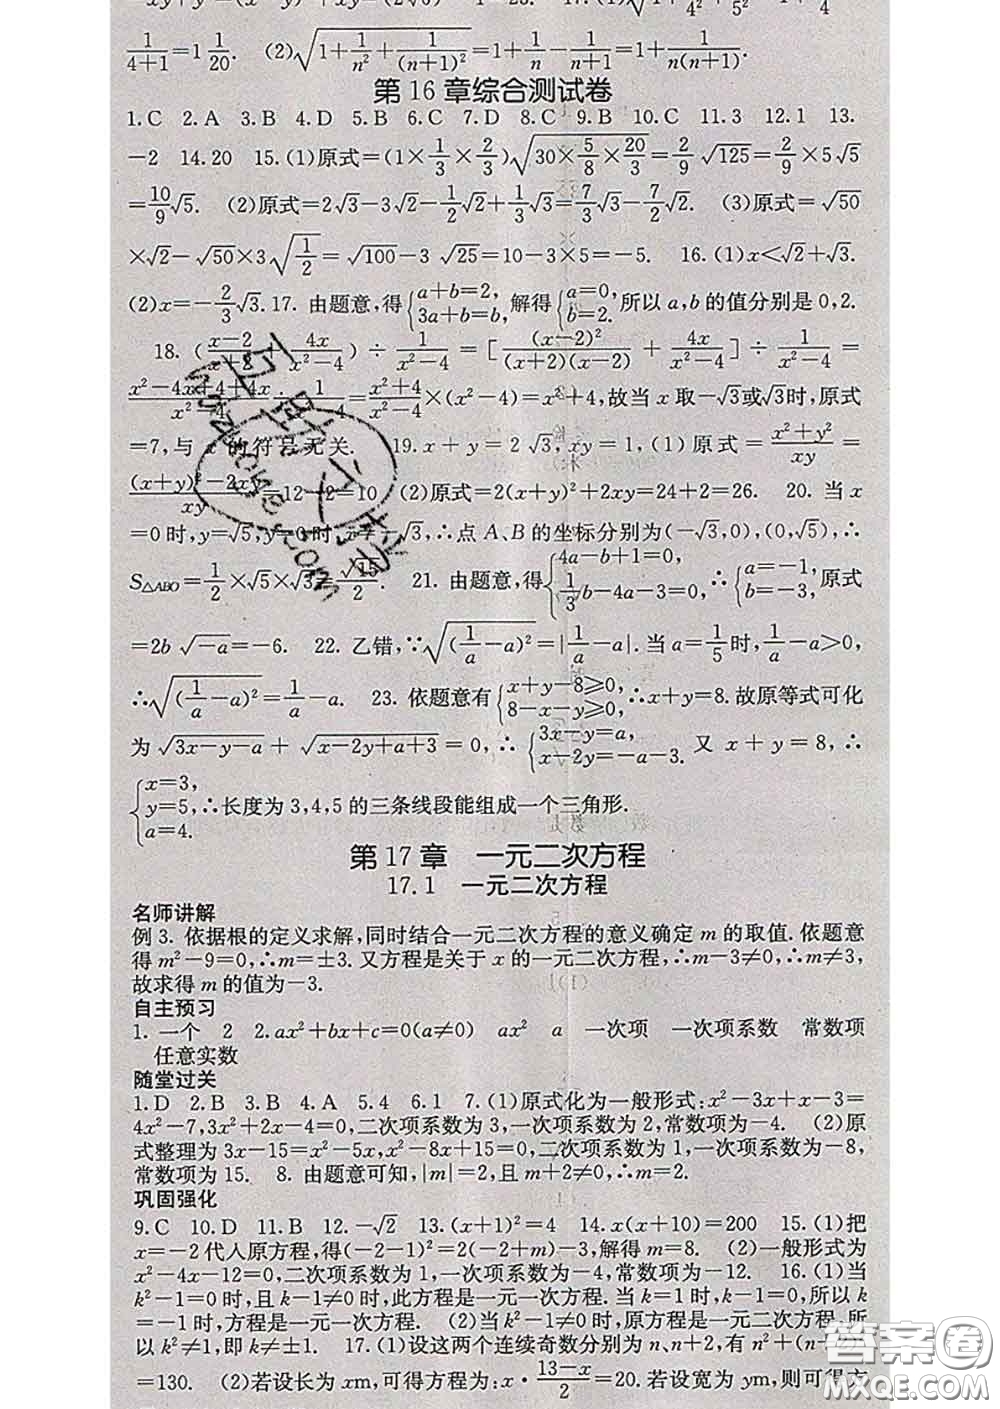 1/(4+1)=1 1/20. (2)√(1+1/n²+1/(n+1)²)=1+1/n-1/(n+1)=1+1/(n(n+1)).
第16章综合测试卷
1.C 2.A 3.B 4.D 5.B 6.C 7.D 8.C 9.B 10.C 11.3 12.1 13.
-2 14.20 15.(1)原式=(1×1/3×2/3)√(30×5/8×20/3)=2/9√125=2/9×5√5
=10/9√5. (2)原式=2√3-3√2-1/2√2+1/3√3=7/3√3-7/2√2. (3)原式=√50
×√2-√50×3√(1/2)=√100-3√25=10-3×5=-5. 16.(1)x<√2+√3.
(2)x=-2/3√3. 17. 由题意,得{a+b=2, 3a+b=b, 解得{a=0, b=2. 所以a,b的值分别是0,2.
18. (x-2/x+2+4x/x²-4)÷1/x²-4=[(x-2)²/(x+2)(x-2)+4x/x²-4]÷1/x²-4=
x²-4x+4+4x/x²-4÷1/x²-4=x²+4/x²-4×(x²-4)=x²+4,故当x取-√3或√3时,原式
=7,与x的符号无关. 19.x+y=2√3,xy=1,(1)原式=x²+y²/xy=
(x+y)²-2xy/xy=12-2=10 (2)原式=2(x+y)²+2xy=24+2=26. 20. 当x
=0时,y=√5,y=0时,x=-√3,∴点A、B的坐标分别为(-√3,0),(0,√5),∴
S△ABO=1/2×√5×√3=√15/2. 21. 由题意,得{4a-b+1=0, 1/3b-4a-3=0, ∴{a=-1, b=-3, 原式
=2b√-a=-6. 22. 乙错,∵√(1/a-a)²=|1/a-a|. 当a=1/5时,1/a-a>0,
∴√(1/a-a)²=1/a-a. 23. 依题意有{x+y-8≥0, 8-x-y≥0, ∴x+y=8. 故原等式可化
为√3x-y-a+√x-2y+a+3=0,∴{3x-y=a, x-2y=-a-3. 又x+y=8,∴
{x=3, y=5, a=4. ∴长度为3,4,5的三条线段能组成一个三角形.
第17章 一元二次方程
17.1 一元二次方程
名师讲解
例3. 依据根的定义求解,同时结合一元二次方程的意义确定m的取值. 依题意
得m²-9=0,∴m=±3. 又方程是关于x的一元二次方程,∴m-3≠0,∴m≠3,
故求得m的值为-3.
自主预习
1. 一个 2 2.ax²+bx+c=0(a≠0) ax² a 一次项 一次项系数 常数项
任意实数
随堂过关
1.D 2.B 3.B 4.A 5.4 6.1 7.(1)原式化为一般形式:x²-3x+x-3=
4x²-7,3x²+2x-4=0,二次项系数为3,一次项系数为2,常数项为-4. (2)原
式整理为3x-15=x²-5x,x²-8x+15=0,二次项系数为1,一次项系数为-8,
常数项为15. 8. 由题意可知,|m|=2,且m+2≠0,∴m=2.
巩固强化
9.C 10.D 11.B 12.-√2 13.(x+1)²=4 14.x(x+10)=200 15.(1)把
x=-2代人原方程,得(-2-1)²=2(-2+m)-3,解得m=8. (2)一般形式为
x²-4x-12=0,二次项系数为1,一次项系数为-4,常数项为-12. 16.(1)当
k²-1=0时,且k-1≠0时,此方程是一元一次方程. 当k=1时,k-1=0,所以k=
-1时,方程是一元一次方程. (2)当k²-1≠0时,原方程是一元二次方程. 所
以k²≠1,即k≠±1. 17.(1)设这两个连续奇数分别为n、n+2,有n²+(n+2)²
=130. (2)若设长为xm,可得方程为:x·13-x/2=20. 若设宽为ym,则可得方
答案圈
MXQE.COM